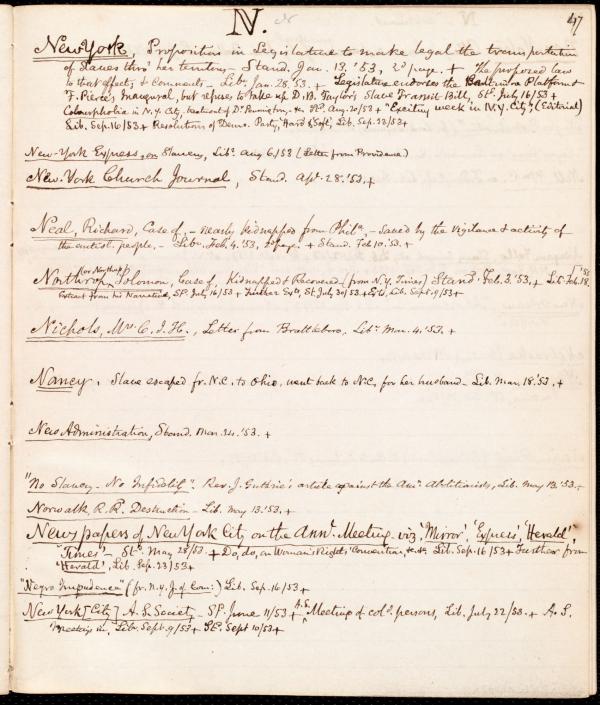 N.
47
New York, Proposition in Legislature to make legal the transportation
of slaves thro' her territory - Stand. Jan. 13. '53, 2d page. + The proposed law
to that effect, & comments - Lib. Jan. 28. '53. + Legislature endorses the Baltimore Platform &
F. Pierce's Inaugural, but refuses to take up D. B. Taylor's Slave Transit Bill, St. July 16/53 +
Colourphobia in N.Y. City, treatment of Dr. Pennington, Aug. 20/53 + "Exciting week in N.Y. City" (Editorial)
Lib. Sep. 16/53 + Resolutions of Demo. Party, 'Hard & Soft', Lib. Sep. 23/53 +
New-York Express, on Slavery, Lib. Aug 5/53 (Letter from Providence)
New-York Church Journal, Stand. Apl. 28. '53. +
Neal, Richard, Case of, - nearly kidnapped from Phila, - saved by the vigilance & activity of
the antisl. people, - Lib. Feb. 4. '53, page. + Stand. Feb 10. '53. +
Northrop (or Northup) Solomon, Case of, Kidnapped & Recovered - (from N.Y. Times) Stand. Feb. 3. '53, + Lib. Feb. 18. '53
Extract from his Narrative, St. July 16/53 + Further Exts, St. July 30/53 + Lib. Sept. 9/53 +
Nichols, Mrs. C. I. H., Letter from Brattleboro, Lib. Mar. 4. '53. +
Nancy, Slave escaped fr. N.C. to Ohio, went back to N.C. for her husband - Lib. Mar. 18. '53. +
New Administration, Stand. Mar. 24. '53. +
"No Slavery - No Infidelity". Rev. J. Guthrie's article against the Am. Abolitionists, Lib. May 13. '53. +
Norwalk, R.R. Destruction - Lib. May 13. '53. +
Newspapers of New York City on the Annl. Meeting viz 'Mirror', 'Express', 'Herald',
'Times' - St. May 28/53. + Do, do, on Woman's Rights' Convention, &c. Lib. Sep. 16/53 + Further from
'Herald', Lib. Sep. 23/53 +
"Negro Impudence" (fr. N.Y. J. of Com:) Lib. Sep. 16/53 +
New York [City] A. S. Society - St. June 11/53 + A. S. Meeting of cold. persons, Lib. July 22/53. + A. S.
Meetings in, Lib. Sept. 9/53 + St. Sept 10/53 +